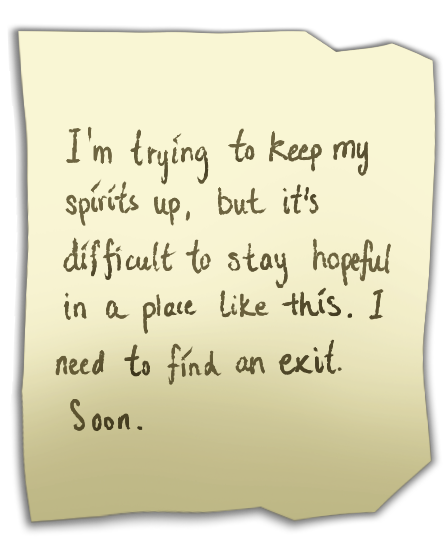 I'm trying to keep my
spirits up, but it's
difficult to stay hopeful
in a place like this. I
need to find an exit.
Soon.